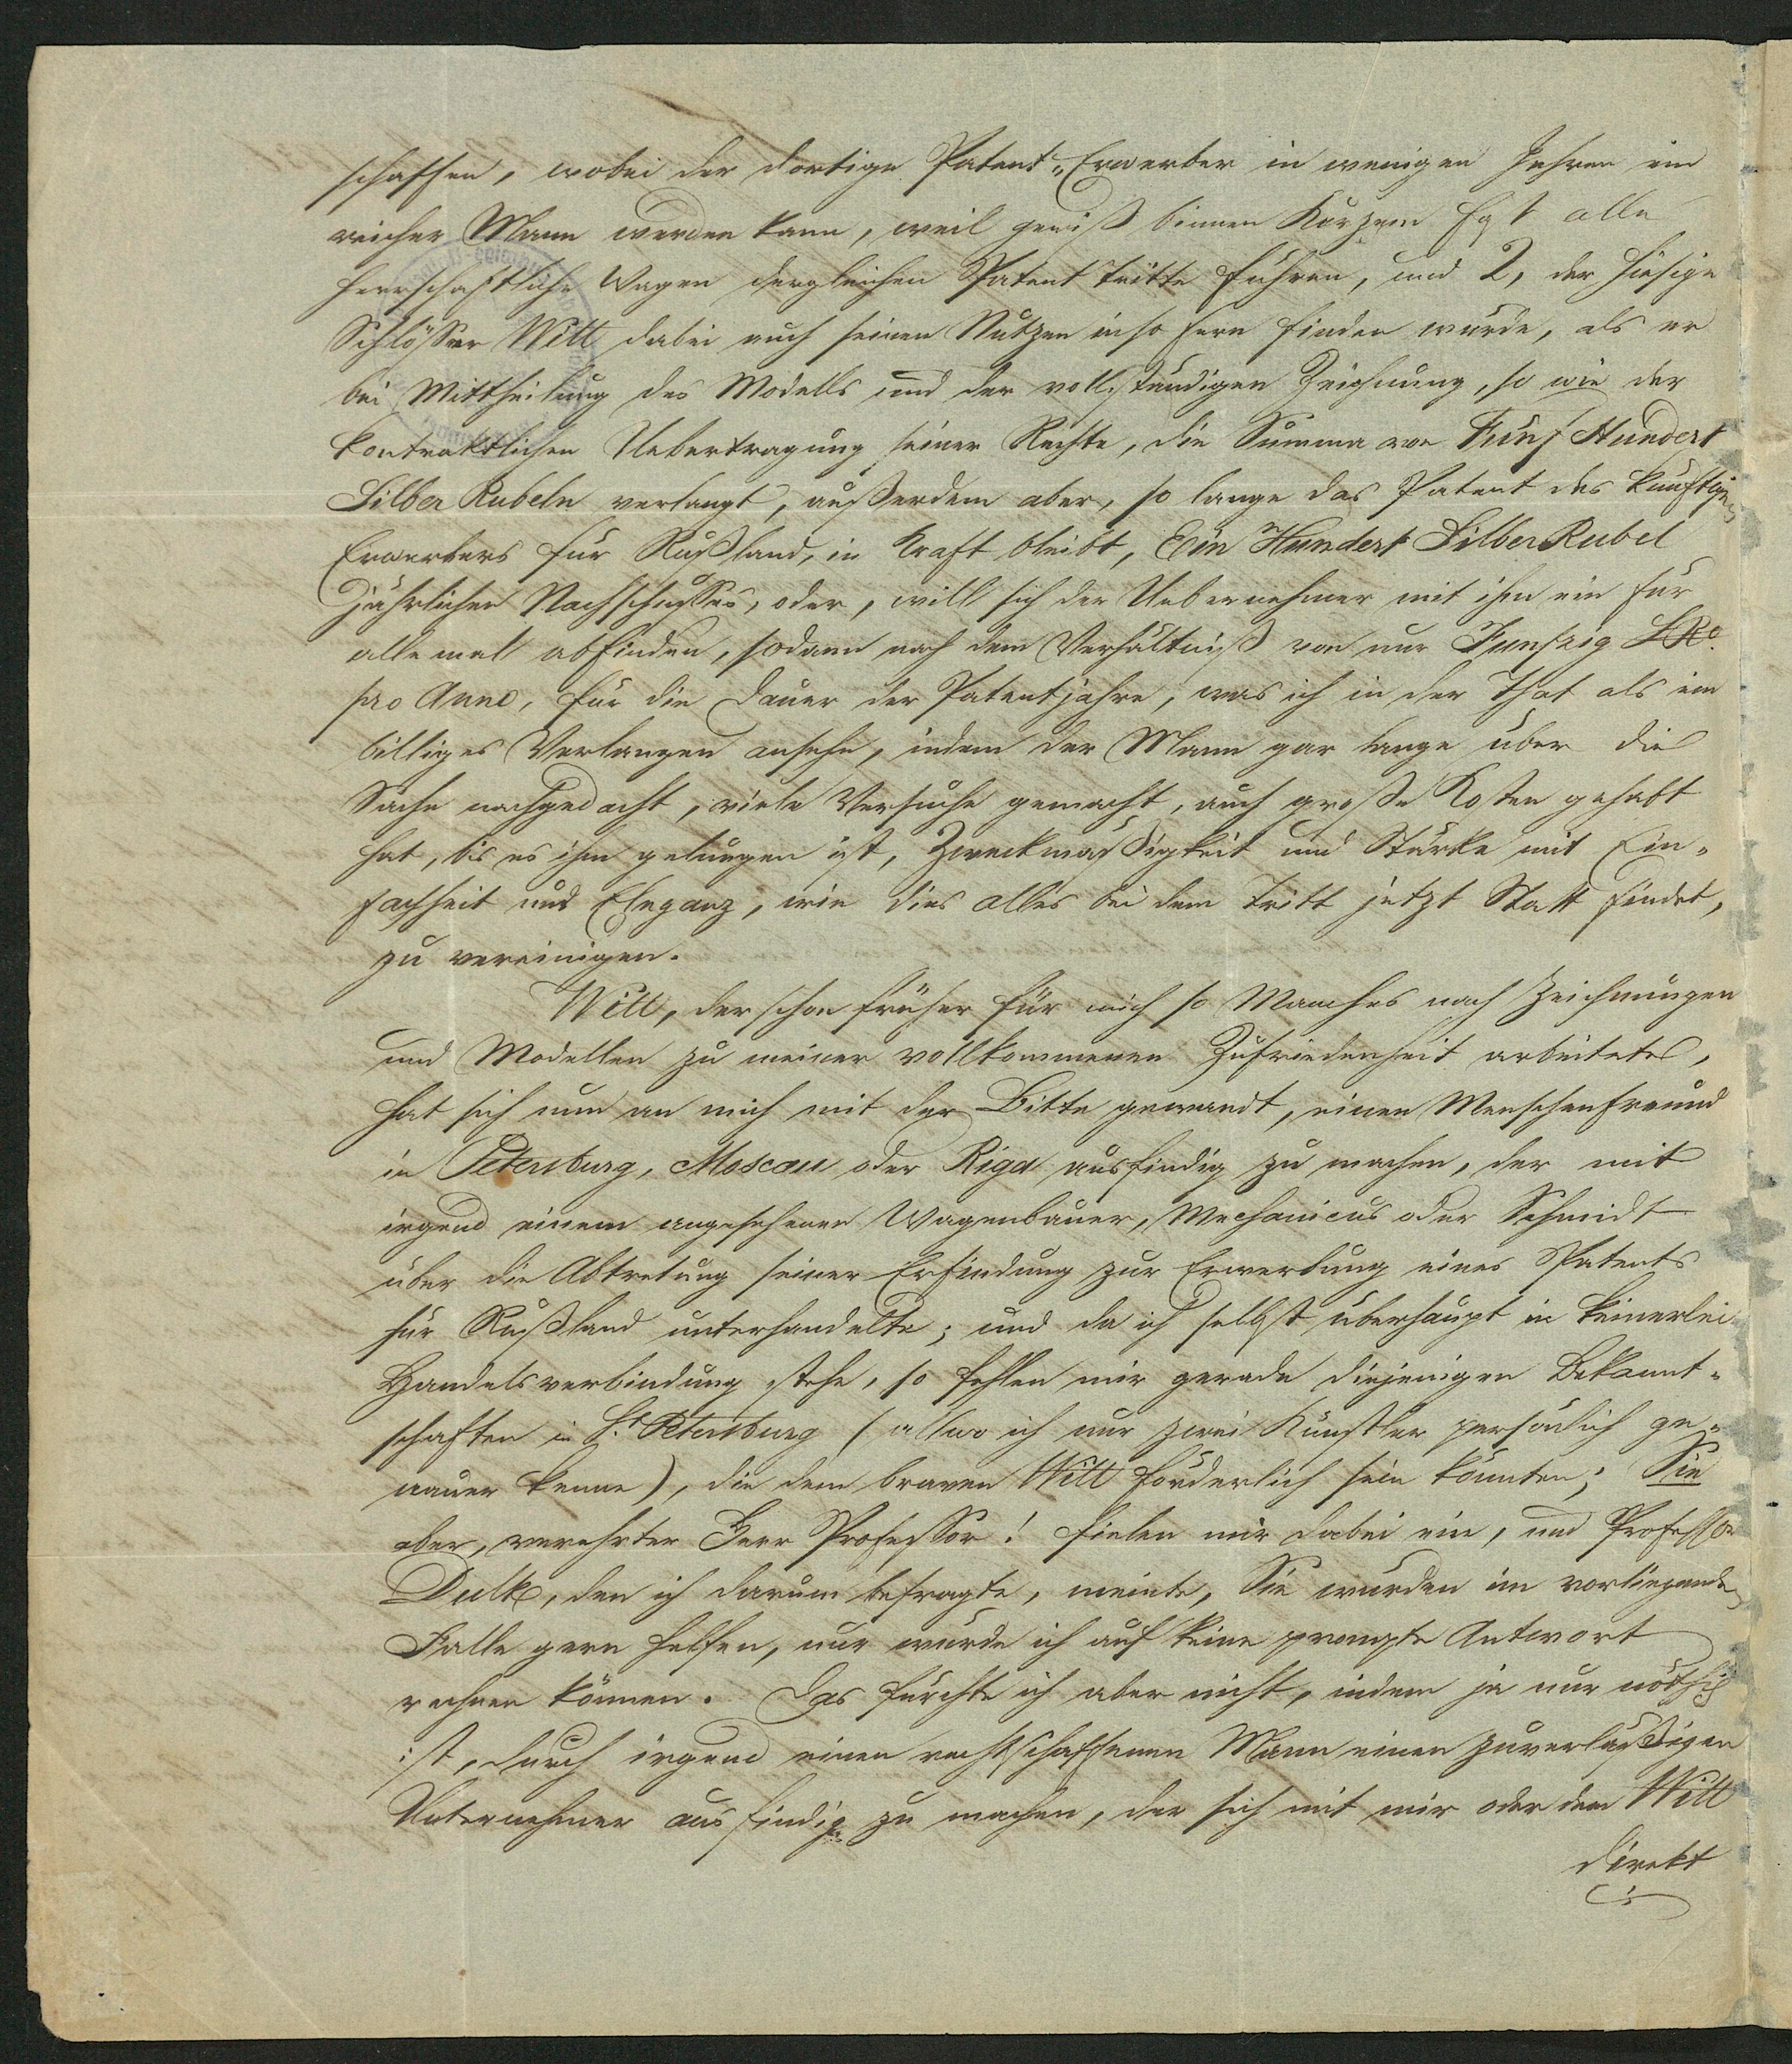 schaffen, wobei der dortige Patent-Erwerber in wenigen Jahren ein
reicher Mann werden kann, weil gewiß binnen Kurzem fast alle
herrschaftliche Wagen dergleichen Patent tritte führen, und 2, der hiesige
Schlösser Witt dabei auch seinen Nutzen inso fern finden würde, als er
bei Mittheilung des Modells und der vollständigen Zeichnung, so wie der
kontraktlichen Uebertragung seiner Rechte, die Summa von Fünf Hundert
Silber Rubeln verlangt, außerdem aber, so lange das Patent des künftigen
Erwerbers für Rußland, in Kraft bleibt, Ein Hundert Silber Rubel
jährlichen Nachschusses, oder, will sich der Uebernehmer mit ihm ein für
alle mal abfinden, sodann nach dem Verhältniß von nur Funfzig SRo.
pro Anno, für die Dauer der Patentjahre, was ich in der That als ein
billiges Verlangen ansehe, indem der Mann gar lange über die
Sache nachgedacht, viele Versuche gemacht, auch große Kosten gehabt
hat, bis es ihm gelungen ist, Zweckmäßigkeit und Stärke mit Ein-
fachheit und Eleganz, wie dies alles bei dem Tritt jetzt Statt findet,
zu vereinigen.
Witt, der schon früher für mich so Manches nach Zeichnungen
und Modellen zu meiner vollkommenen Zufriedenheit arbeitete,
hat sich nun an mich mit der Bitte gewandt, einen Menschenfreund
in Petersburg, Moscau oder Riga ausfindig zu machen, der mit
irgend einem angesehenen Wagenbauer, Mechanicus oder Schmidt
über die Abtretung seiner Erfindung zur Erwerbung eines Patents
für Rußland unterhandelte; und da ich selbst überhaupt in keinerlei
Handelsverbindung stehe, so fehlen mir gerade diejenigen Bekannt-
schaften in St. Petersburg (allwo ich nur zwei Künstler persönlich ge-
nauer kenne), die dem braven Witt förderlich sein könnten; Sie
aber, verehrter Herr Professor! fielen mir dabei ein, und Professor
Dulk, den ich darum befragte, meinte, Sie würden im vorliegenden
Falle gern helfen, nur würde ich auf keine prompte Antwort
rechnen können. Das fürchte ich aber nicht, indem ja nur nöthig
ist, durch irgend einen rechtschaffenen Mann einen zuverläßigen
Unternehmer ausfindig zu machen, der sich mit mir oder dem Witt
direkt